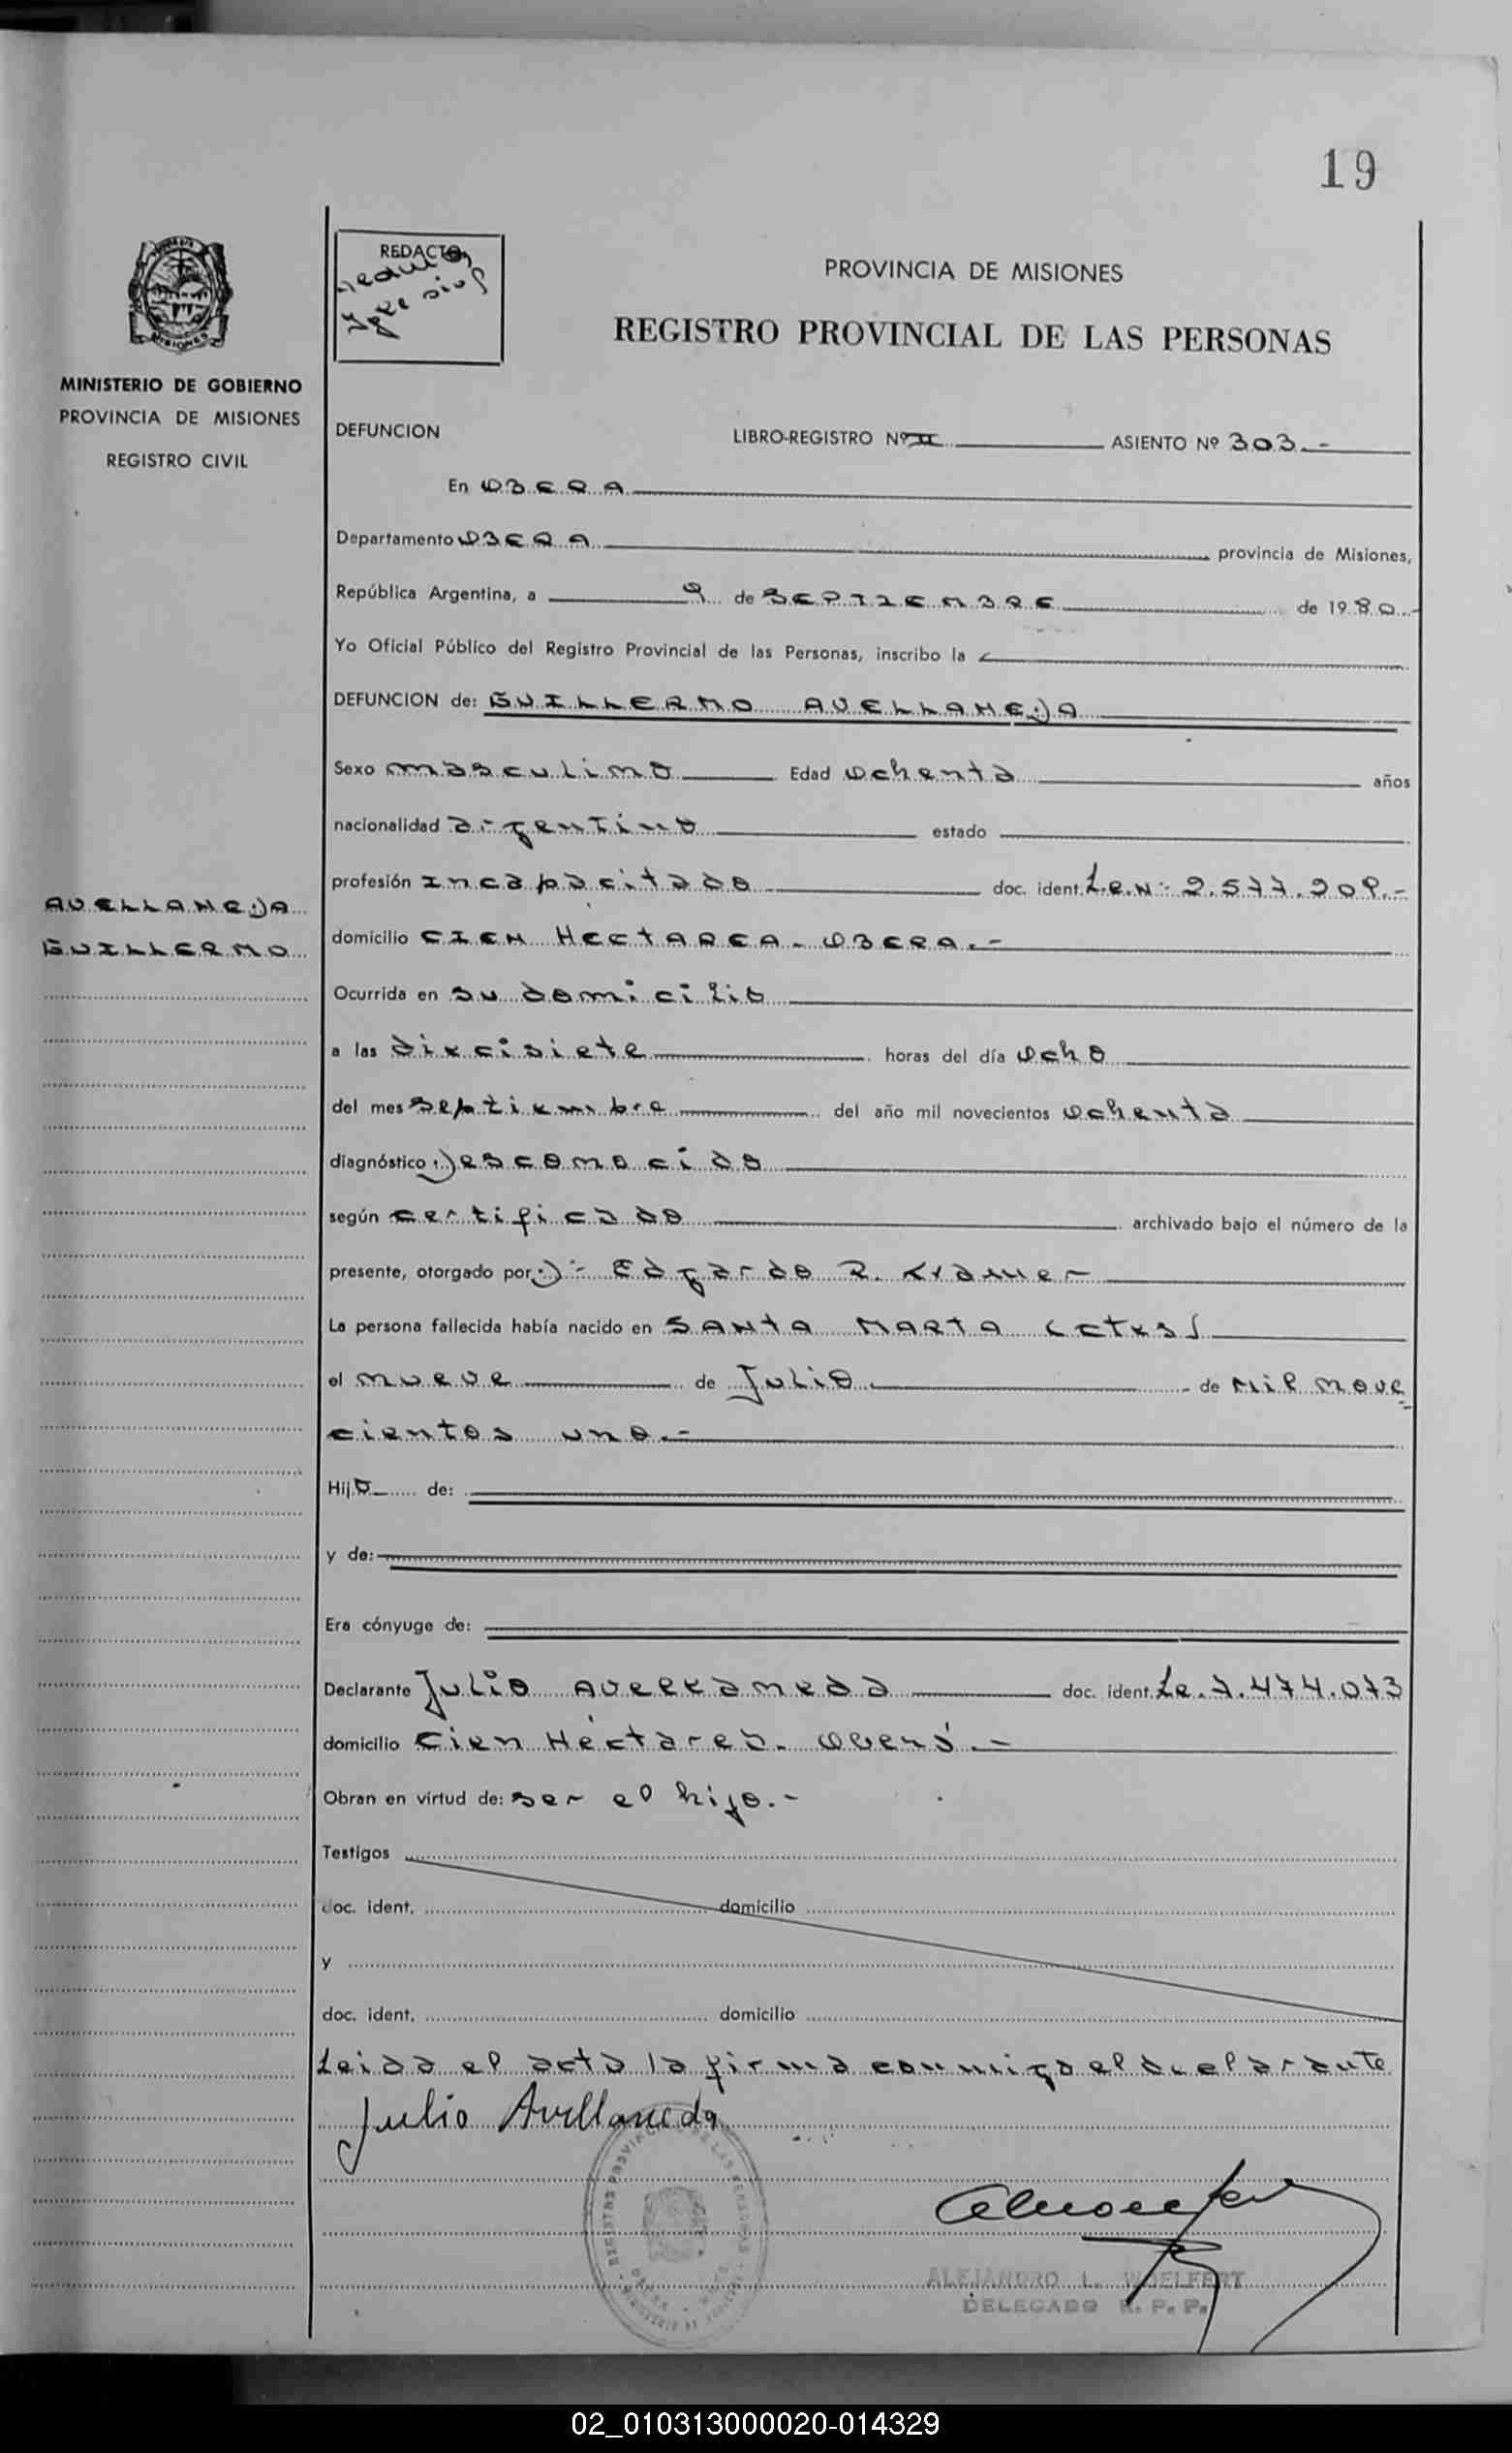 19
REDACTO
PROVINCIA DE MISIONES
REGISTRO PROVINCIAL DE LAS PERSONAS
MISIONES
MINISTERIO DE GOBIERNO
PROVINCIA DE MISIONES
REGISTRO CIVIL
AVELLANEDA
GUILLERMO
DEFUNCION LIBRO-REGISTRO Nº II ASIENTO Nº 303.-
En OBERA
Departamento OBERA provincia de Misiones,
República Argentina, a 9 de SEPTIEMBRE de 1980.-
Yo Oficial Público del Registro Provincial de las Personas, inscribo la
DEFUNCION de: GUILLERMO AVELLANEDA
Sexo masculino Edad ochenta años
nacionalidad argentino estado
profesión Incapacitado doc. ident. L.e.Nº 2.577.209.-
domicilio CIEN HECTAREA - OBERA.-
Ocurrida en su domicilio
a las diecisiete horas del día ocho
del mes septiembre del año mil novecientos ochenta
diagnóstico Desconocido
según certificado archivado bajo el número de la
presente, otorgado por D: Edgardo R. Kramer
La persona fallecida había nacido en SANTA MARTA (ctes)
el nueve de Julio de Mil nove
cientos uno.-
Hijo de:
y de:
Era cónyuge de:
Declarante Julio Avellaneda doc. ident. Le. 7.474.073
domicilio Cien Héctarea. Oberá.-
Obran en virtud de: ser el hijo.-
Testigos
doc. ident. domicilio
y
doc. ident. domicilio
Leida el acta la firma conmigo el declarante
Julio Avellaneda
ALEJANDRO L. WOELFERT
DELEGADO R. P. P.
02_010313000020-014329